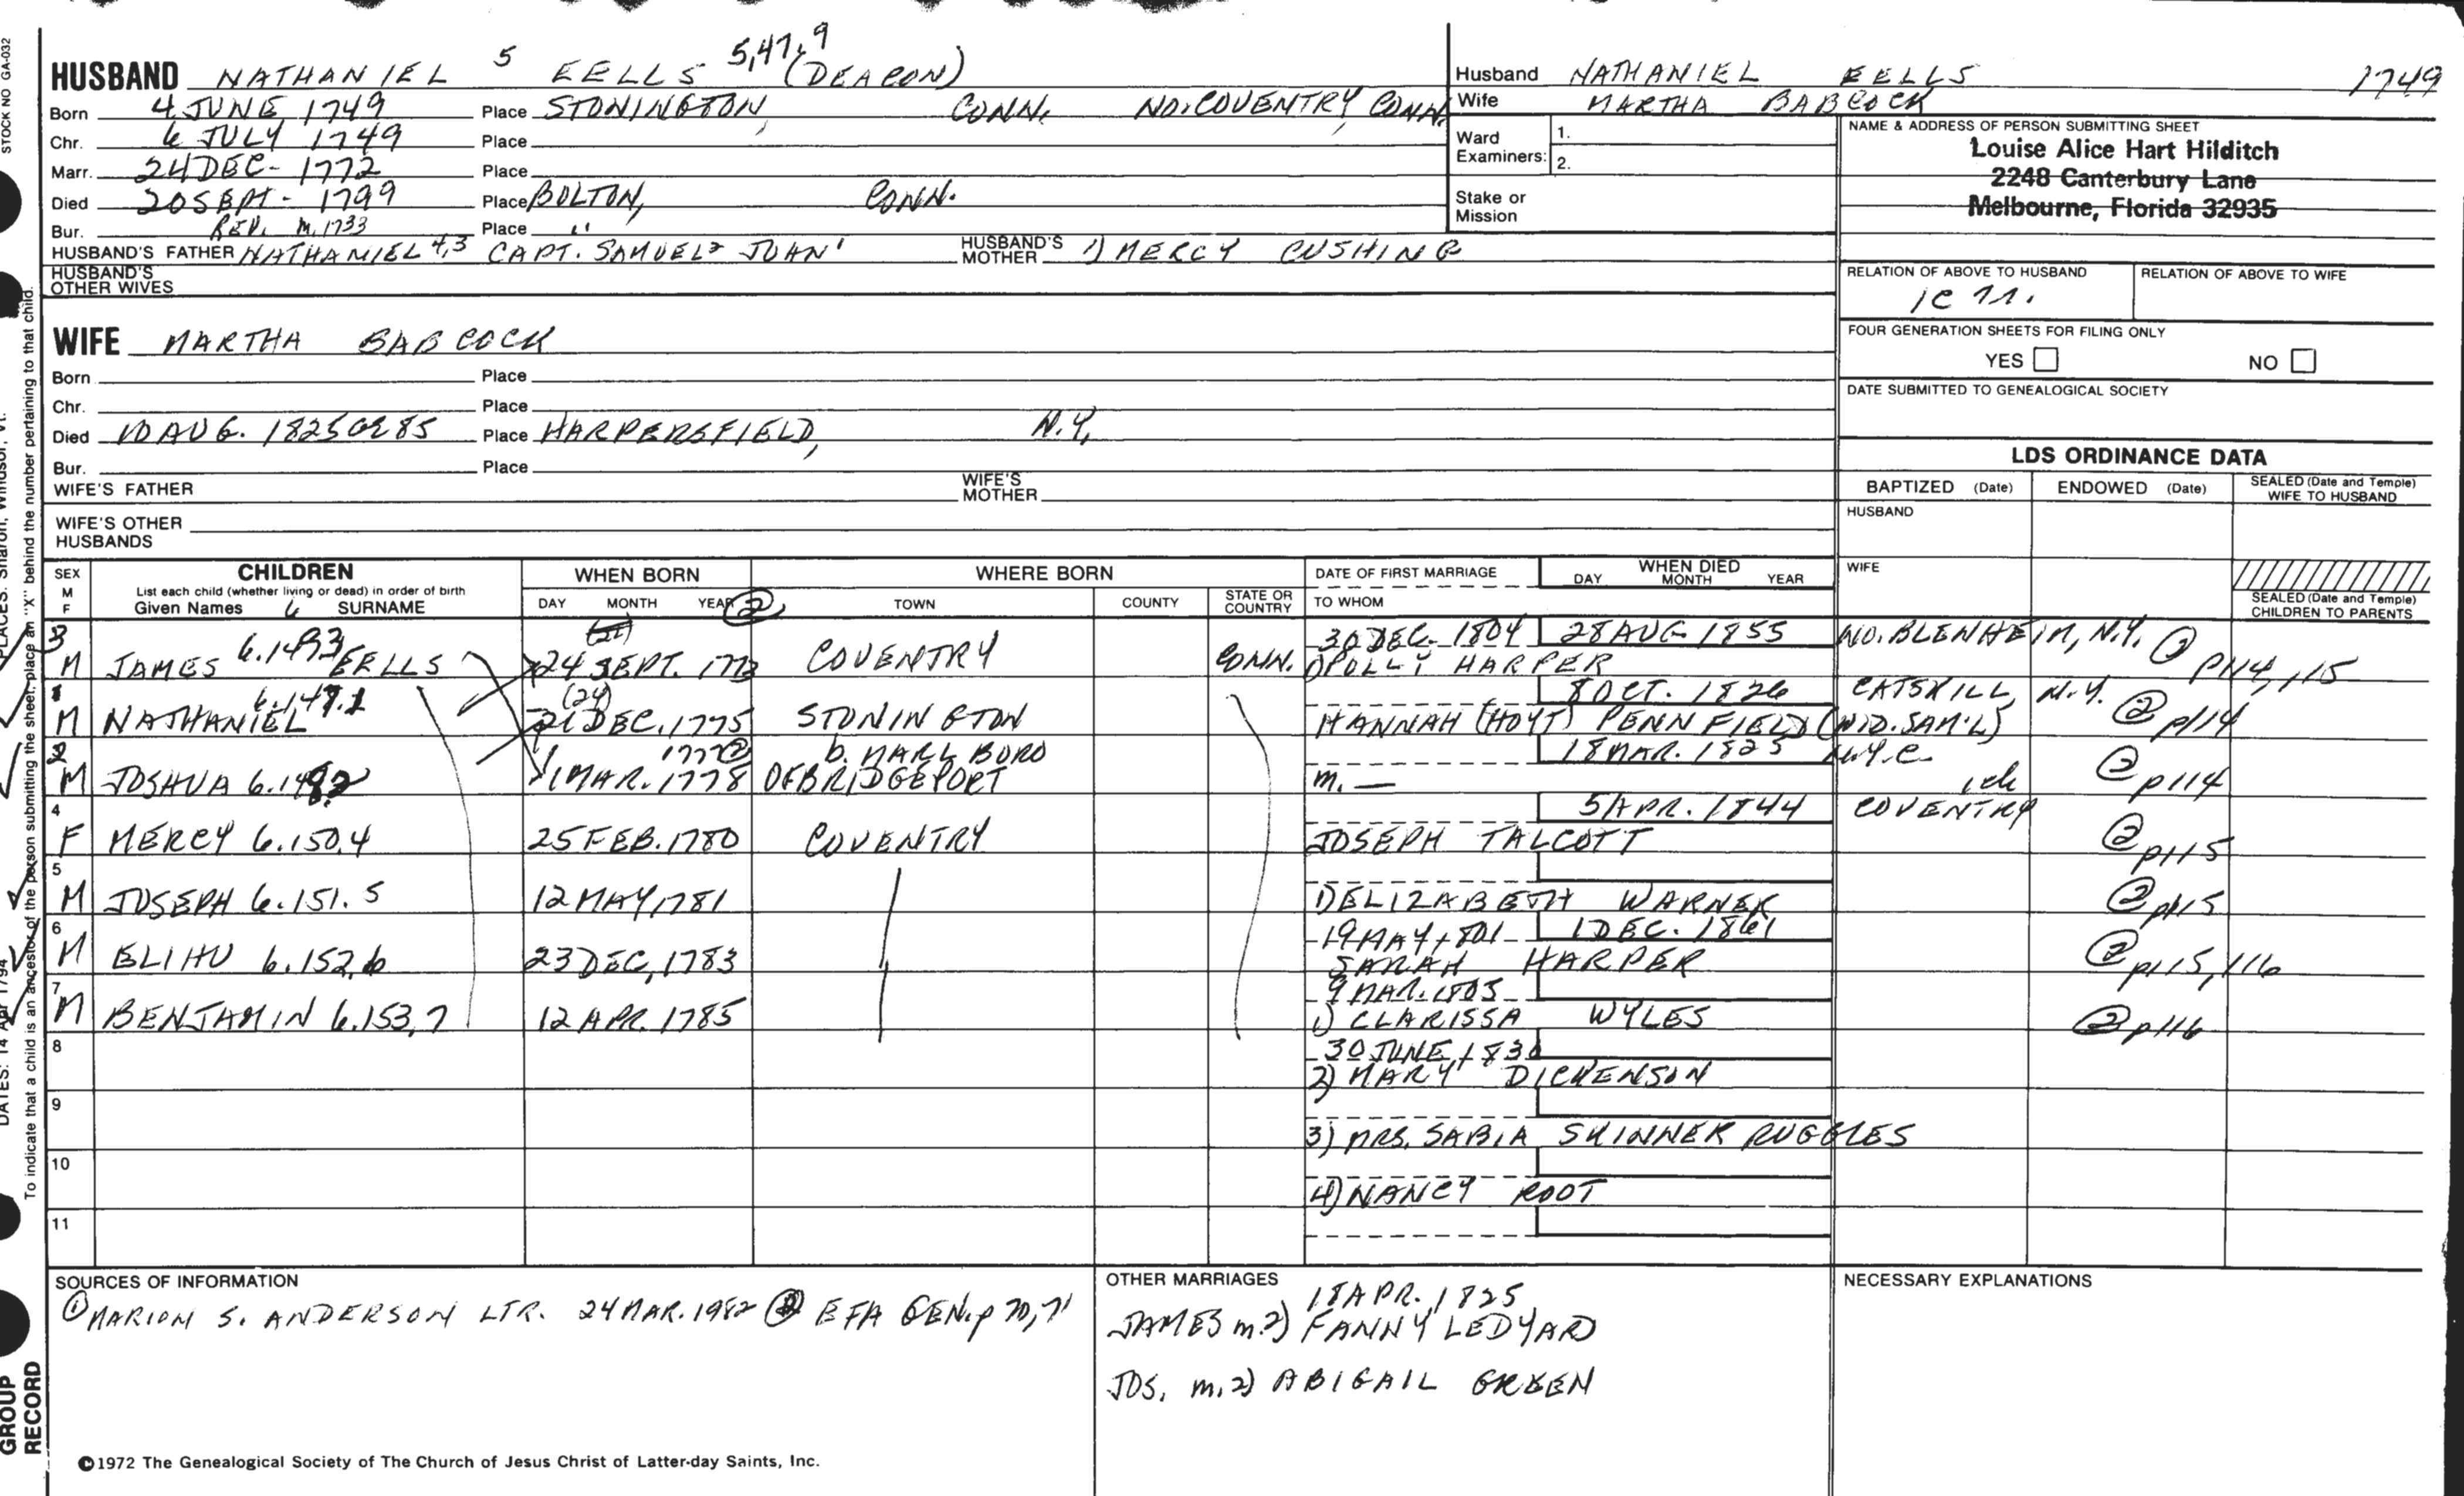 STOCK NO GA-032
HUSBAND NATHANIEL 5 EELLS 5,47,9 (DEACON)
Born 4 JUNE, 1749 Place STONINGTON, CONN. NO. COVENTRY, CONN.
Chr. 6 JULY 1749 Place
Marr. 24 DEC - 1772 Place
Died 20 SEPT - 1799 Place BOLTON, CONN.
Bur. REV. m. 1733 Place "
HUSBAND'S FATHER NATHANIEL 4,3 CAPT. SAMUEL 2 JOHN 1 HUSBAND'S MOTHER 1) MERCY CUSHING
HUSBAND'S OTHER WIVES
WIFE MARTHA BABCOCK
Born Place
Chr. Place
Died 10 AUG. 1825 Æ 85 Place HARPERSFIELD, N.Y.
Bur. Place
WIFE'S FATHER WIFE'S MOTHER
WIFE'S OTHER HUSBANDS
Husband NATHANIEL EELLS 1749
Wife MARTHA BABCOCK
Ward Examiners: 1.
2.
Stake or Mission
NAME & ADDRESS OF PERSON SUBMITTING SHEET
Louise Alice Hart Hilditch
2248 Canterbury Lane
Melbourne, Florida 32935
RELATION OF ABOVE TO HUSBAND RELATION OF ABOVE TO WIFE
FOUR GENERATION SHEETS FOR FILING ONLY
YES NO
DATE SUBMITTED TO GENEALOGICAL SOCIETY
LDS ORDINANCE DATA
BAPTIZED (Date) ENDOWED (Date) SEALED (Date and Temple) WIFE TO HUSBAND
HUSBAND
WIFE
SEALED (Date and Temple) CHILDREN TO PARENTS
SEX M F
CHILDREN
List each child (whether living or dead) in order of birth
Given Names 6 SURNAME
WHEN BORN
DAY MONTH YEAR 2
WHERE BORN
TOWN COUNTY STATE OR COUNTRY
DATE OF FIRST MARRIAGE
TO WHOM
WHEN DIED
DAY MONTH YEAR
3 30 DEC. 1804 28 AUG 1855 NO. BLENHEIM, N.Y. 2 p114, 115
M JAMES 6.149.3 EELLS 24 SEPT. 1773 COVENTRY CONN. 1) POLLY HARPER
1 (24) 8 OCT. 1826 CATSKILL, N.Y. 2 p114
M NATHANIEL 6.147.1 21 DEC, 1775 STONINGTON HANNAH (HOYT) PENNFIELD (WID. SAM'L)
2 1777 2 b. MARLBORO 18 MAR. 1825 N.Y.C.
M JOSHUA 1 MAR. 1778 OF BRIDGEPORT m. — 2 p114
4 5 APR. 1844 COVENTRY
F MERCY 6.150.4 25 FEB. 1780 COVENTRY JOSEPH TALCOTT 2 p115
5
M JOSEPH 6.151.5 12 MAY, 1781 1) ELIZABETH WARNER 2 p115
6 19 MAY, 1801 1 DEC. 1861
M ELIHU 6.152.6 23 DEC, 1783 SARAH HARPER 2 p115, 116
7 9 MAR. 1805
M BENJAMIN 6.153,7 12 APR. 1785 1) CLARISSA WYLES 2 p116
8 30 JUNE, 1830
2) MARY DICKENSON
9
3) MRS. SABIA SKINNER RUGGLES
10
4) NANCY ROOT
11
SOURCES OF INFORMATION
1 MARION S. ANDERSON LTR. 24 MAR. 1982 2 EFA GEN. p 70, 71
OTHER MARRIAGES
18 APR. 1825
JAMES m. 2) FANNY LEDYARD
JOS. m. 2) ABIGAIL GREEN
NECESSARY EXPLANATIONS
©1972 The Genealogical Society of The Church of Jesus Christ of Latter-day Saints, Inc.
To indicate that a child is an ancestor of the person submitting the sheet, place an "X" behind the number pertaining to that child.
GROUP RECORD